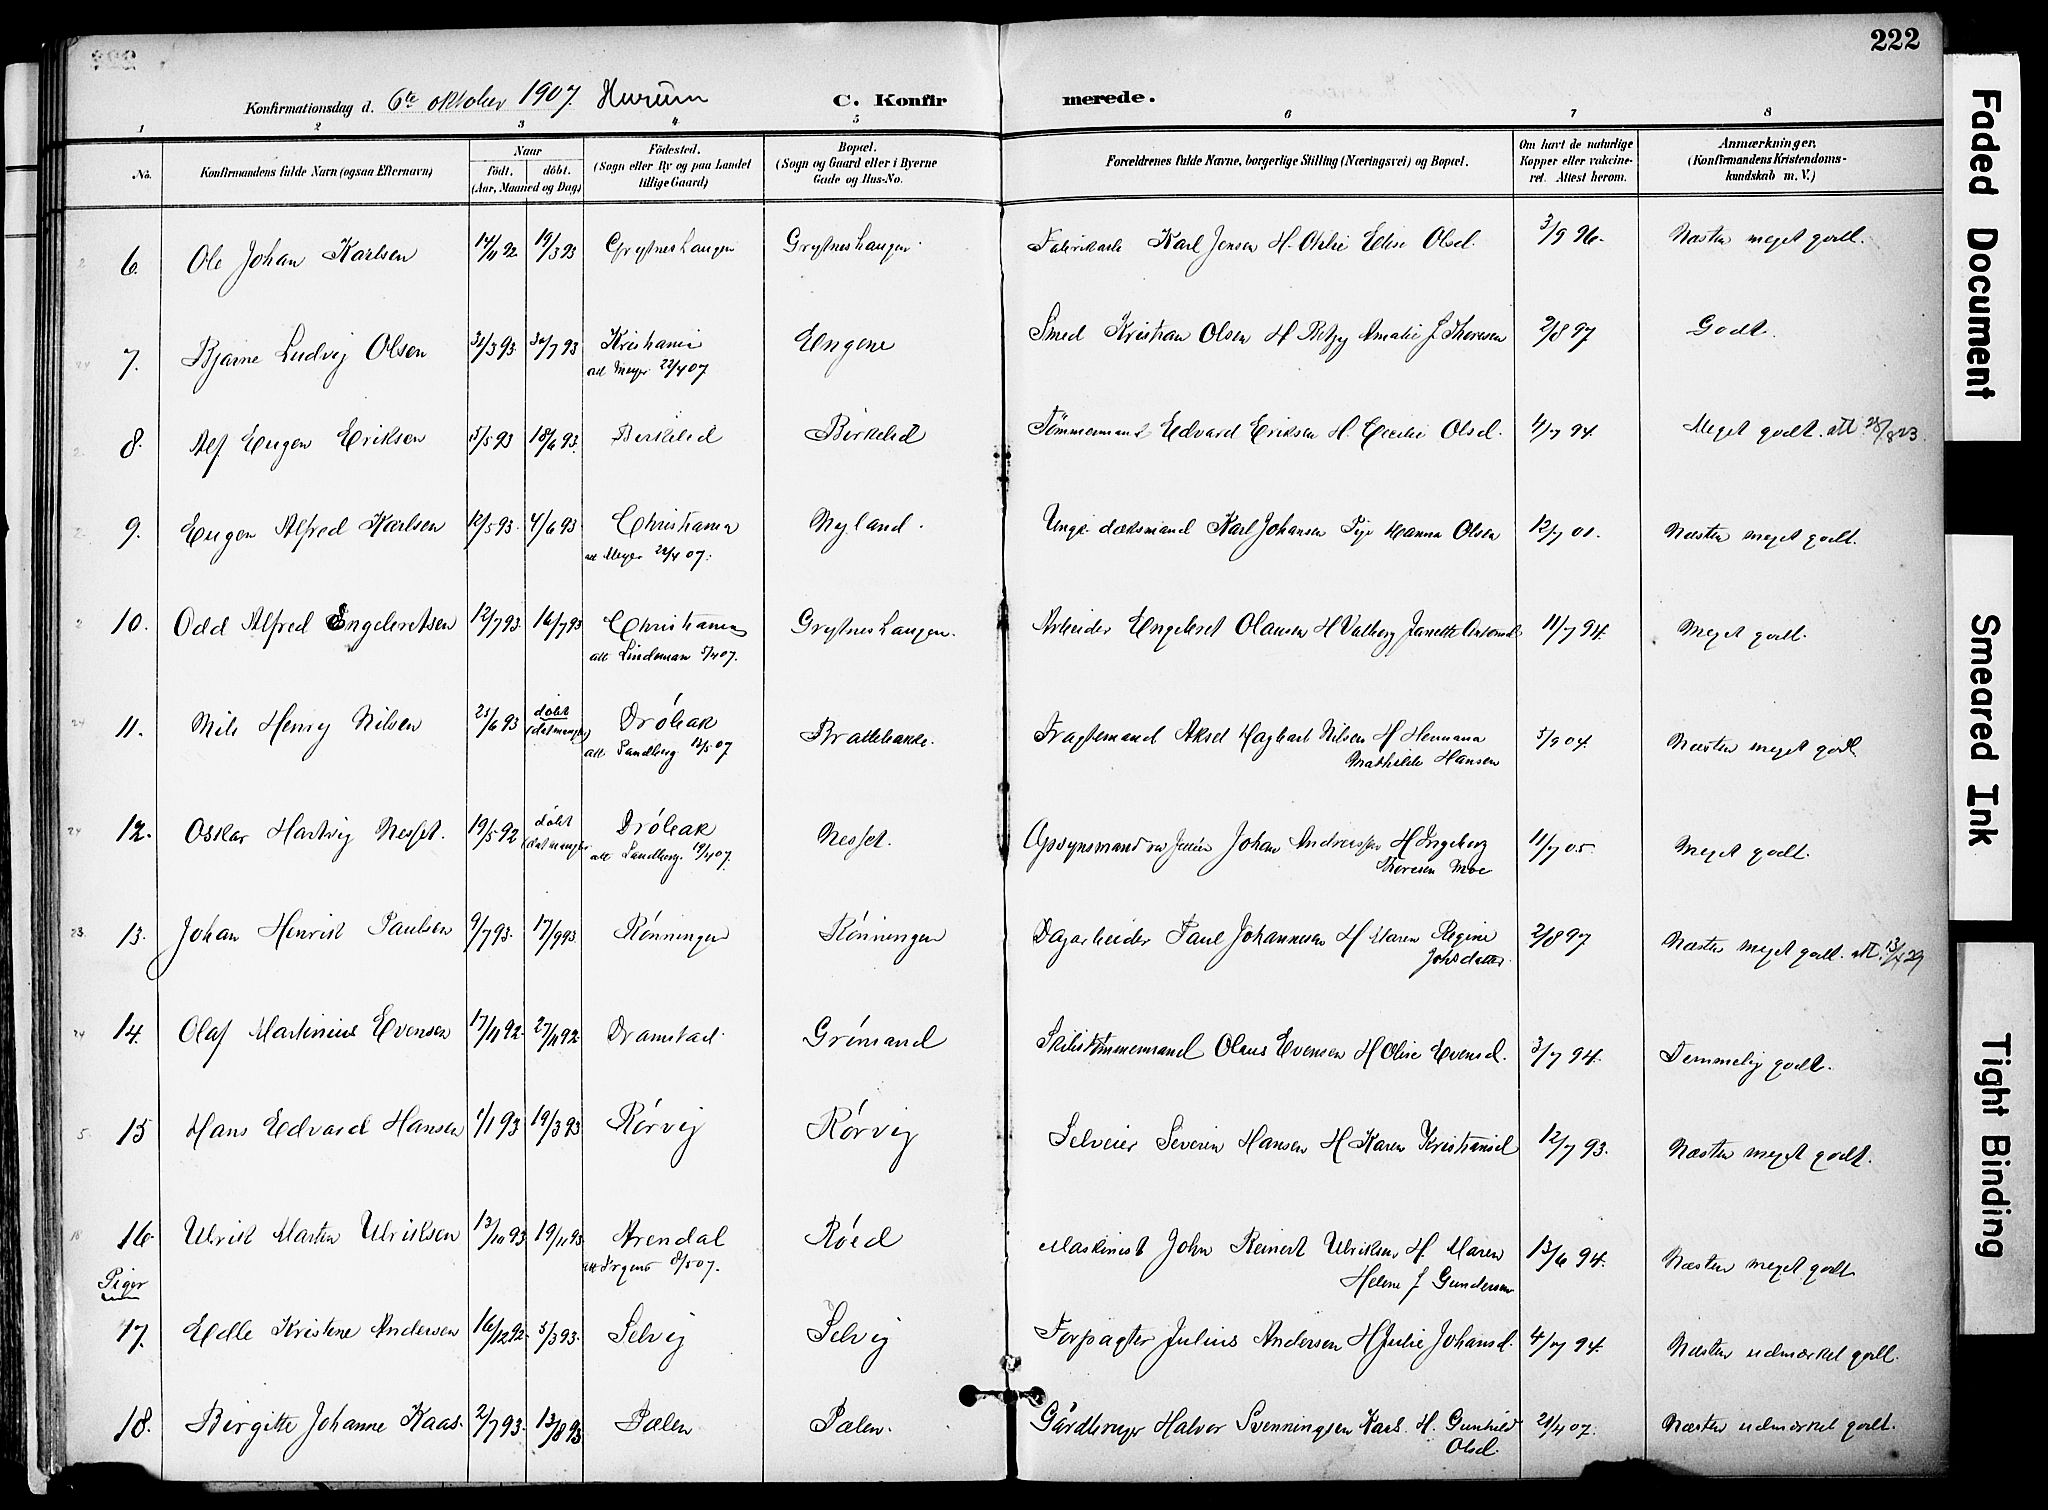 222
Konfirmationsdag d. 6te oktober 1907. Hurum C. Konfirmerede.
1 2 3 4 5 6 7 8
No. Konfirmandens fulde Navn (ogsaa Efternavn) Naar födt. döbt. (Aar, Maaned og Dag) Födested. (Sogn eller By og paa Landet tillige Gaard) Bopæl. (Sogn og Gaard eller i Byerne Gade og Hus-No. Forældrenes fulde Navne, borgerlige Stilling (Næringsvei) og Bopæl. Om havt de naturlige Kopper eller vakcineret. Attest herom. Anmærkninger. (Konfirmandens Kristendomskundskab m. V.)
6. Ole Johan Karlsen 14/11 92 19/3 93 Grytneshaugen Grytneshaugen. Fabrikarb Karl Jensen H. Othlie Elise Olsd. 3/9 96. Næsten meget godt.
7. Bjarne Ludvig Olsen 31/3 93 30/7 93 Kristiania Engene Smed Kristian Olsen H Betzy Amalie J. Thoresen 2/8 97 Godt.
att Meyer 22/4 07
8. Alf Eugen Eriksen 5/5 93 18/6 93. Birkelid Birkelid Tömmermand Edvard Eriksen H. Cecilie Olsd. 4/7 94. Meget godt. att. 28/8 23.
9. Eugen Alfred Karlsen 12/5 93. 4/6 93 Christiania Nyland. Unge. dæksmand Karl Johansen Pige Hanna Olsen 12/7 01. Næsten meget godt.
att Meyer 22/4 07.
10. Odd Alfred Engebretsen 12/7 93. 16/7 93 Christiania Grytneshaugen. Arbeider Engebret Olausen H Valborg Janette Antonsd 11/7 94. Meget godt.
att Lindeman 5/4 07.
11. Nils Henry Nilsen 25/6 93 döbt (dat mangler) Dröbak Brattebakke. Fragtemand Aksel Hagbart Nilsen H Hermana Mathilde Hansen 5/9 04. Næsten meget godt
att Sandberg 12/5 07
12. Oskar Hartvig Nesset. 19/5 92 döbt (dat mangler Dröbak Nesset. Opsynsmand Johan Andreassen H Ingeborg Thoresen Moe 11/7 05. Meget godt.
att Sandberg. 19/4 07.
13. Johan Henrik Paulsen 9/7 93. 17/9 93. Rönningen Rönningen Dagarbeider Paul Johannesen H Maren Regine Johsdatter. 2/8 97 Næsten meget godt. att. 13/4 29
14. Olaf Martinius Evensen 17/11 92. 27/11 92. Dramstad. Grömand Skibstömmermand Olaus Evensen H Olise Evensd. 3/7 94. Temmelig godt.
15 Hans Edvard Hansen 1/1 93 19/3 93 Rörvig Rörvig Selveier Severin Hansen H Karen Kristiansd 12/7 93. Næsten meget godt.
16. Ulrik Martin Ulriksen 13/10 93 19/11 93 Arendal Röed Maskinist John Reinert Ulriksen H. Maren Helene J Gundersen 13/6 94. Næsten meget godt
att Irgens 8/5 07.
Piger
17. Edle Kristine Andersen 16/12 92. 5/3 93. Selvig Selvig Forpagter Julius Andersen H Julie Johansd. 4/7 94. Næsten udmærket godt.
18. Birgitte Johanne Kaas 2/7 93. 13/8 93 Pælen Pælen. Gårdbruger Halvor Svenningsen Kaas. H. Gunhild Olsd. 21/4 07. Næsten udmærket godt.
Faded Document
Smeared Ink
Tight Binding